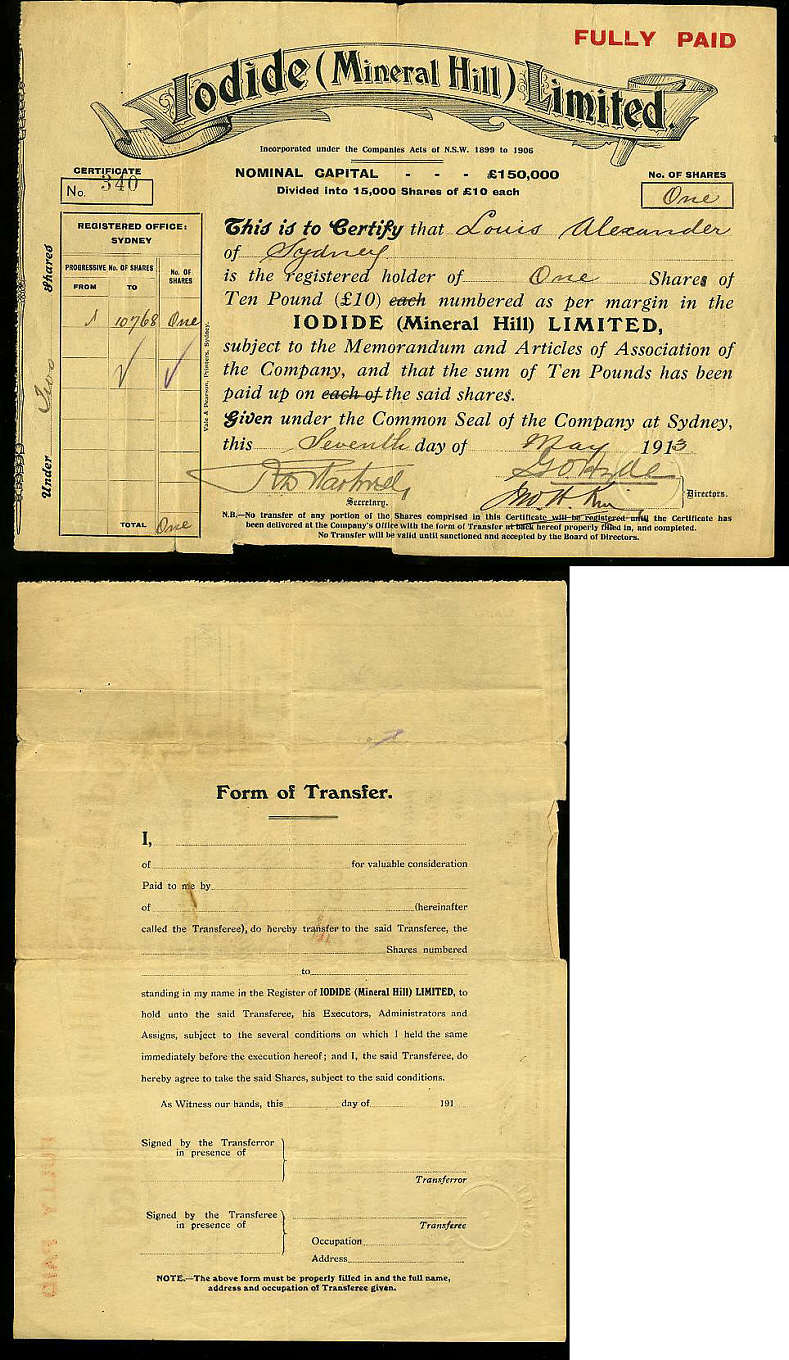 FULLY PAID
Iodide (Mineral Hill) Limited.
Incorporated under the Companies Acts of N.S.W. 1899 to 1906
CERTIFICATE
No. 340
NOMINAL CAPITAL - - - £150,000
Divided into 15,000 Shares of £10 each
No. OF SHARES
One
REGISTERED OFFICE:
SYDNEY
PROGRESSIVE No. OF SHARES
No. OF
SHARES
FROM TO
1 10768 One
TOTAL One
Under Two Shares
Vale & Pearson, Printers, Sydney.
This is to Certify that Louis Alexander
of Sydney
is the registered holder of One Shares of
Ten Pound (£10) each numbered as per margin in the
IODIDE (Mineral Hill) LIMITED,
subject to the Memorandum and Articles of Association of
the Company, and that the sum of Ten Pounds has been
paid up on each of the said shares.
Given under the Common Seal of the Company at Sydney,
this Seventh day of May 1913
Secretary.
Directors.
N.B.—No transfer of any portion of the Shares comprised in this Certificate will be registered until the Certificate has
been delivered at the Company's Office with the form of Transfer at back hereof properly filled in, and completed.
No Transfer will be valid until sanctioned and accepted by the Board of Directors.
Form of Transfer.
I,
of for valuable consideration
Paid to me by
of (hereinafter
called the Transferee), do hereby transfer to the said Transferee, the
Shares numbered
to
standing in my name in the Register of IODIDE (Mineral Hill) LIMITED, to
hold unto the said Transferee, his Executors, Administrators and
Assigns, subject to the several conditions on which I held the same
immediately before the execution hereof; and I, the said Transferee, do
hereby agree to take the said Shares, subject to the said conditions.
As Witness our hands, this day of 191
Signed by the Transferror
in presence of
Transferror
Signed by the Transferee
in presence of
Transferee
Occupation
Address
NOTE.—The above form must be properly filled in and the full name,
address and occupation of Transferee given.